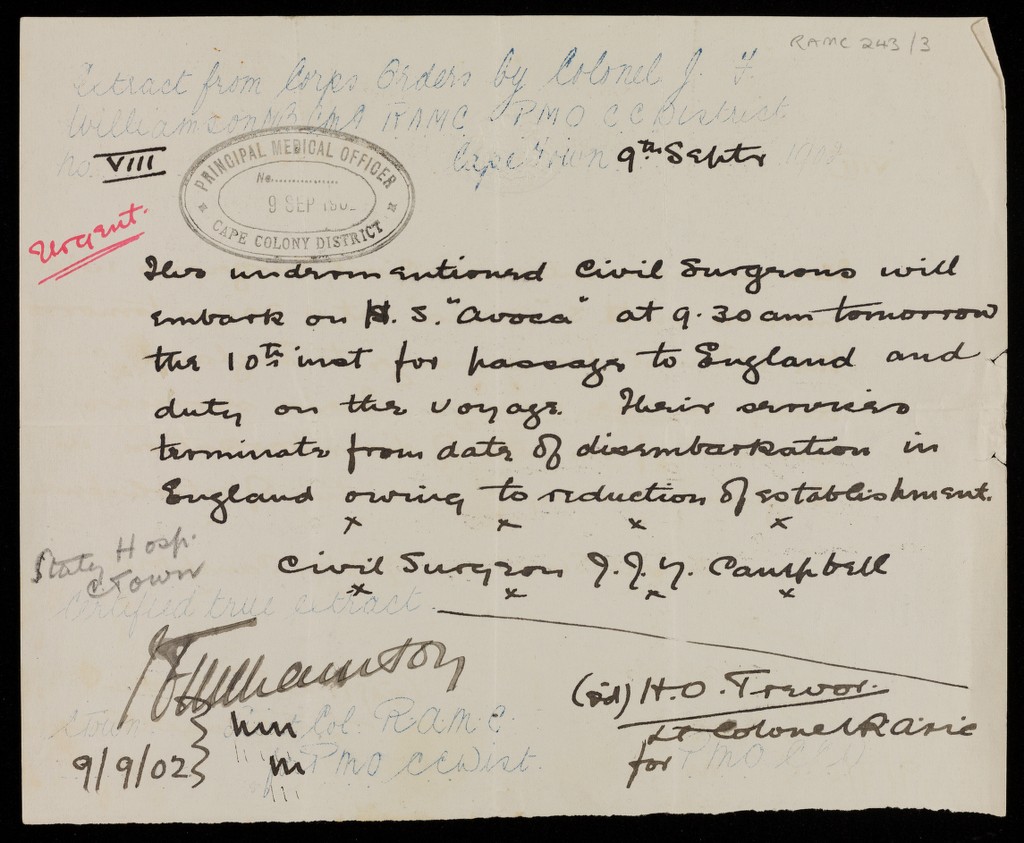 RAMC 243/3
Extract from Corps Orders by Colonel J. F.
Williamson MB CMG RAMC PMO CC District
No. VIII Cape Town 9th Septr 190
PRINCIPAL MEDICAL OFFICER
No..................
9 SEP 190
CAPE COLONY DISTRICT
Urgent.
The undermentioned Civil Surgeons will
embark on H. S. "Avoca" at 9.30 am tomorrow
the 10th inst for passage to England and
duty on the voyage. Their services
terminate from date of disembarkation in
England owing to reduction of establishment.
x x x x
Civil Surgeon J. J. Y. Campbell
x x x x
Hosp.
C. Town
Certified true extract
Williamson
Col. R.A.M.C.
9/9/02
PMO CC Dist.
(sd) H. O. Trevor.
Lt Colonel RAMC
for PMO CCD